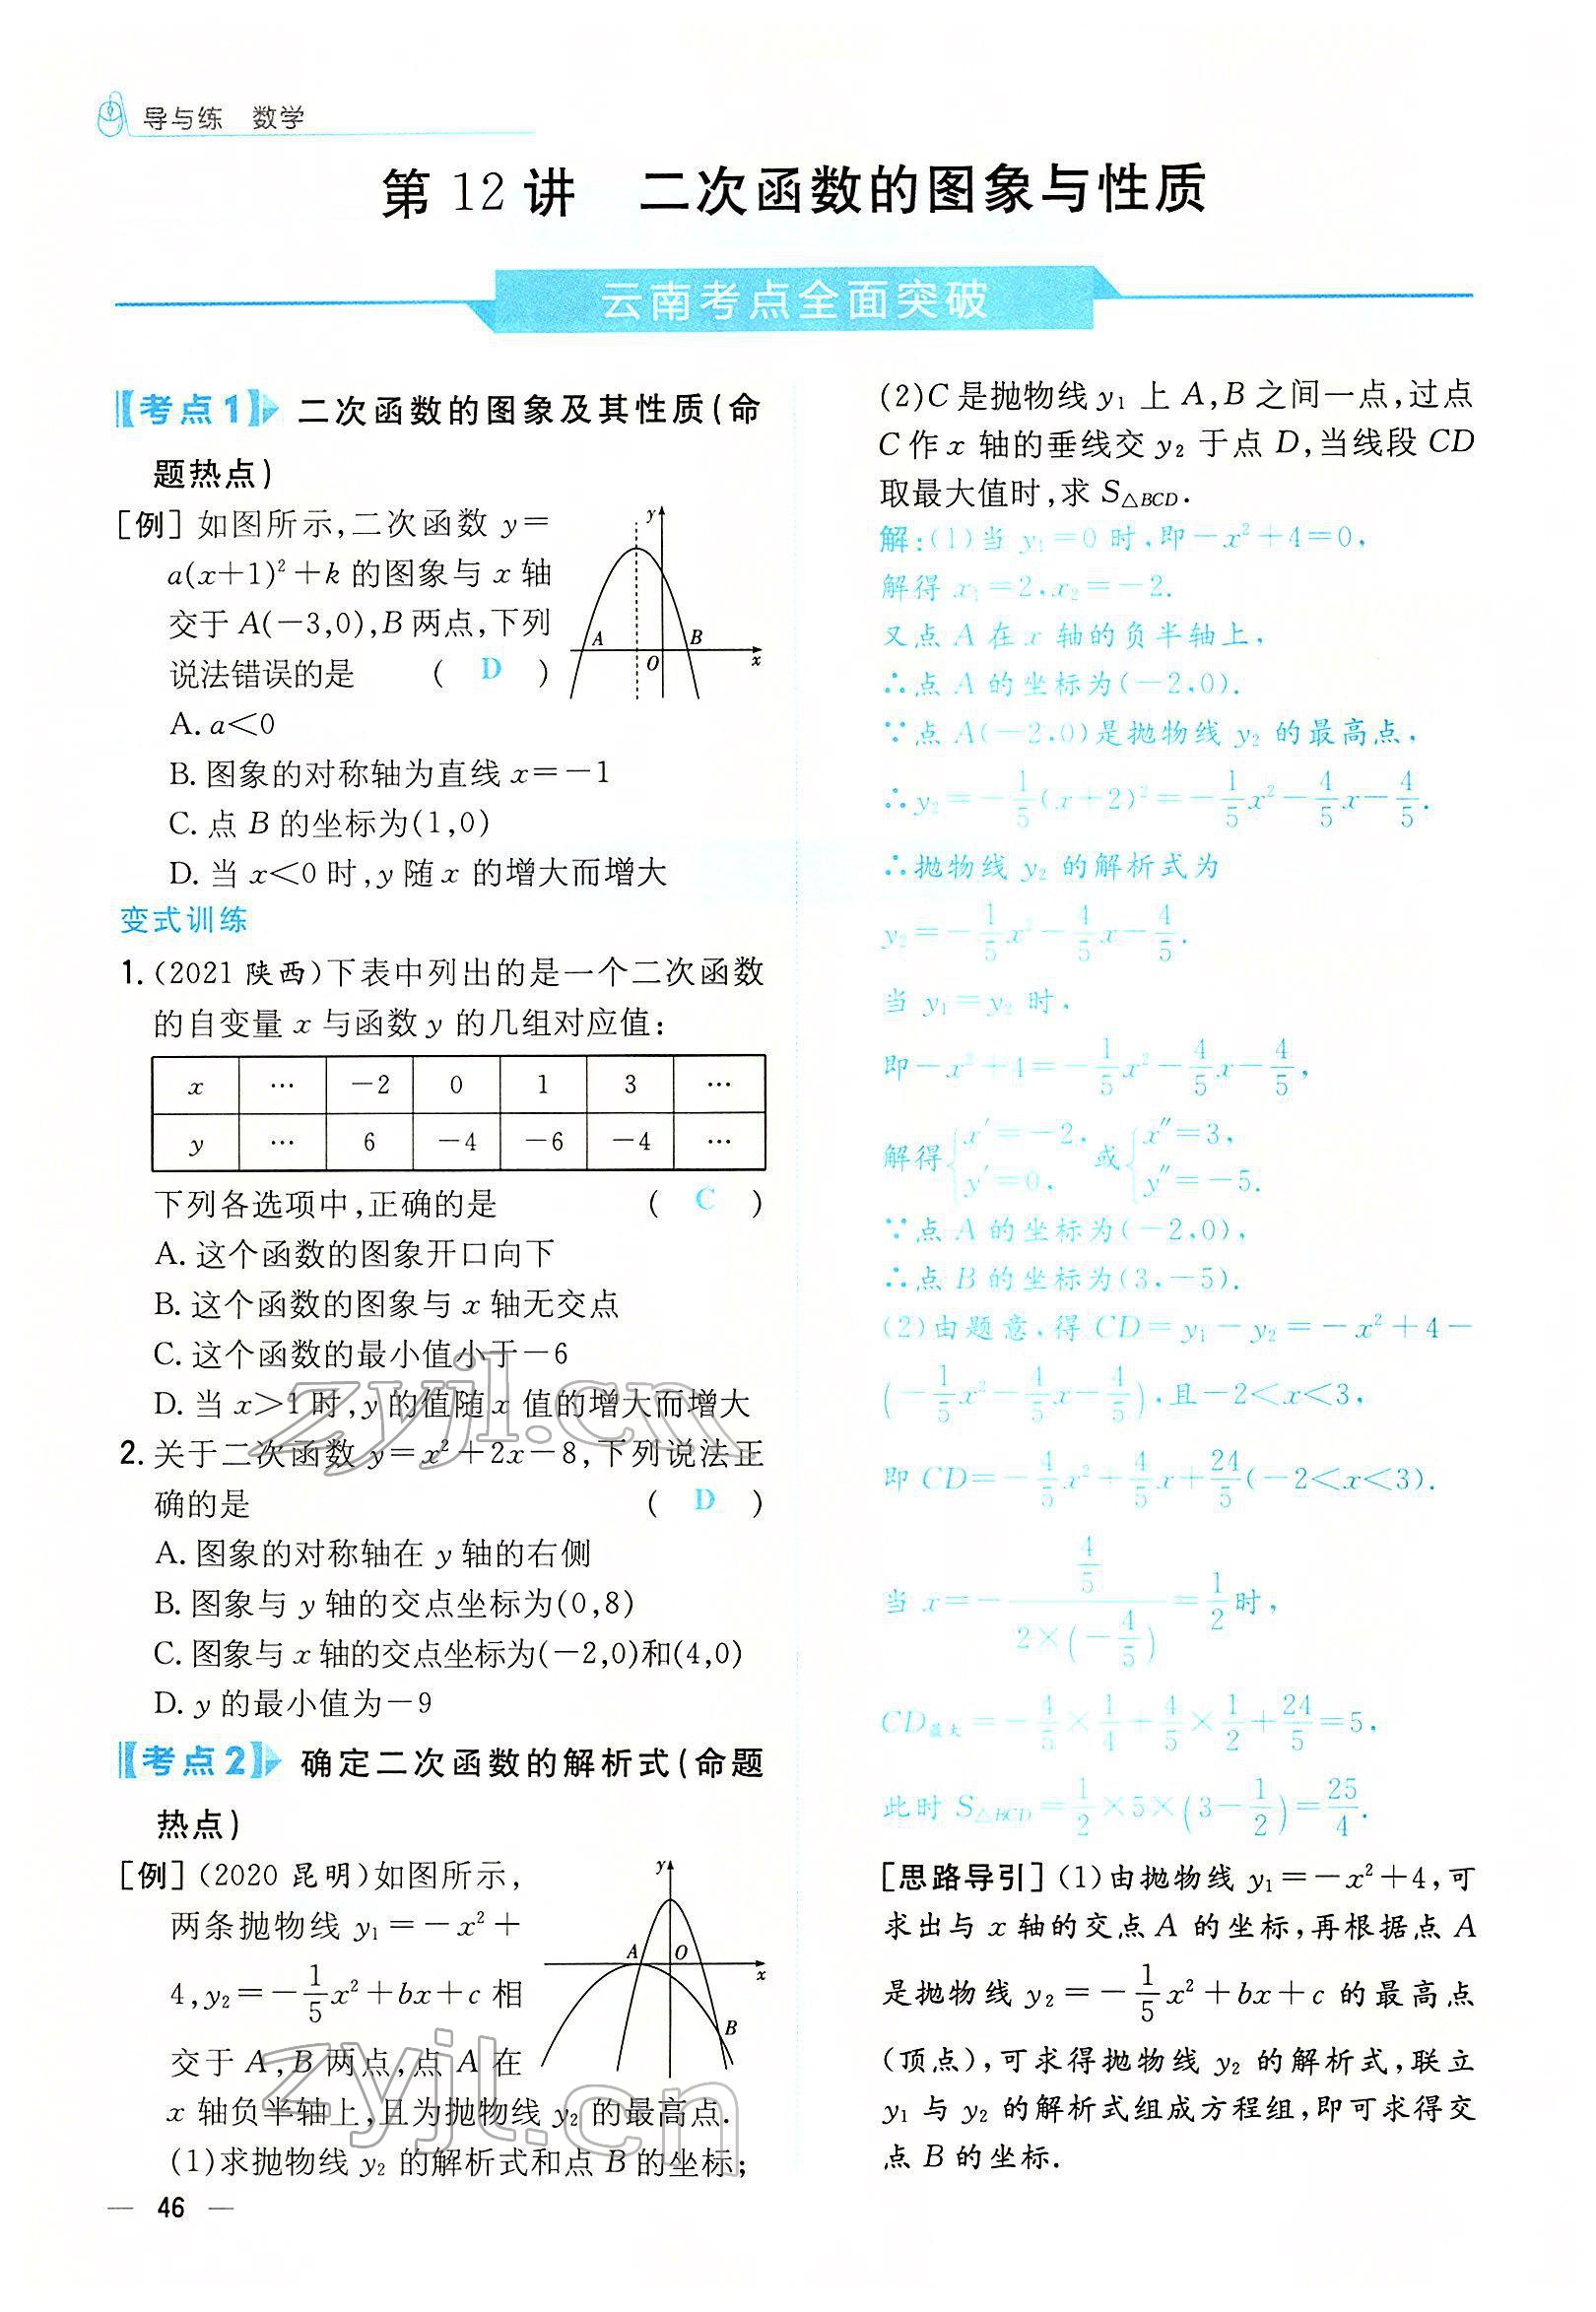 导与练　数学
第 12 讲　二次函数的图象与性质
云南考点全面突破
【考点1】 二次函数的图象及其性质(命
题热点)
[例] 如图所示,二次函数 y=
a(x+1)²+k 的图象与 x 轴
交于 A(-3,0),B 两点,下列
说法错误的是 ( D )
A. a<0
B. 图象的对称轴为直线 x=-1
C. 点 B 的坐标为(1,0)
D. 当 x<0 时,y 随 x 的增大而增大
y
A
B
O
x
变式训练
1. (2021 陕西)下表中列出的是一个二次函数
的自变量 x 与函数 y 的几组对应值:
x … -2 0 1 3 …
y … 6 -4 -6 -4 …
下列各选项中,正确的是 ( C )
A. 这个函数的图象开口向下
B. 这个函数的图象与 x 轴无交点
C. 这个函数的最小值小于-6
D. 当 x>1 时,y 的值随 x 值的增大而增大
2. 关于二次函数 y=x²+2x-8,下列说法正
确的是 ( D )
A. 图象的对称轴在 y 轴的右侧
B. 图象与 y 轴的交点坐标为(0,8)
C. 图象与 x 轴的交点坐标为(-2,0)和(4,0)
D. y 的最小值为-9
zyjl.cn
【考点2】 确定二次函数的解析式(命题
热点)
[例] (2020 昆明)如图所示,
两条抛物线 y₁=-x²+
4,y₂=-1/5x²+bx+c 相
交于 A,B 两点,点 A 在
x 轴负半轴上,且为抛物线 y₂ 的最高点.
(1)求抛物线 y₂ 的解析式和点 B 的坐标;
y
A
O
x
B
zyjl.cn
46
(2)C 是抛物线 y₁ 上 A,B 之间一点,过点
C 作 x 轴的垂线交 y₂ 于点 D,当线段 CD
取最大值时,求 S△BCD.
解:(1)当 y₁=0 时,即-x²+4=0,
解得 x₁=2,x₂=-2.
又点 A 在 x 轴的负半轴上,
∴点 A 的坐标为(-2,0).
∵点 A(-2,0)是抛物线 y₂ 的最高点,
∴y₂=-1/5(x+2)²=-1/5x²-4/5x-4/5.
∴抛物线 y₂ 的解析式为
y₂=-1/5x²-4/5x-4/5.
当 y₁=y₂ 时,
即-x²+4=-1/5x²-4/5x-4/5,
解得{x′=-2, y′=0, 或{x″=3, y″=-5.
∵点 A 的坐标为(-2,0),
∴点 B 的坐标为(3,-5).
(2)由题意,得 CD=y₁-y₂=-x²+4-
(-1/5x²-4/5x-4/5),且-2<x<3,
即 CD=-4/5x²+4/5x+24/5(-2<x<3).
当 x=-(4/5)/(2×(-4/5))=1/2时,
CD最大=-4/5×1/4+4/5×1/2+24/5=5,
此时 S△BCD=1/2×5×(3-1/2)=25/4.
[思路导引] (1)由抛物线 y₁=-x²+4,可
求出与 x 轴的交点 A 的坐标,再根据点 A
是抛物线 y₂=-1/5x²+bx+c 的最高点
(顶点),可求得抛物线 y₂ 的解析式,联立
y₁ 与 y₂ 的解析式组成方程组,即可求得交
点 B 的坐标.